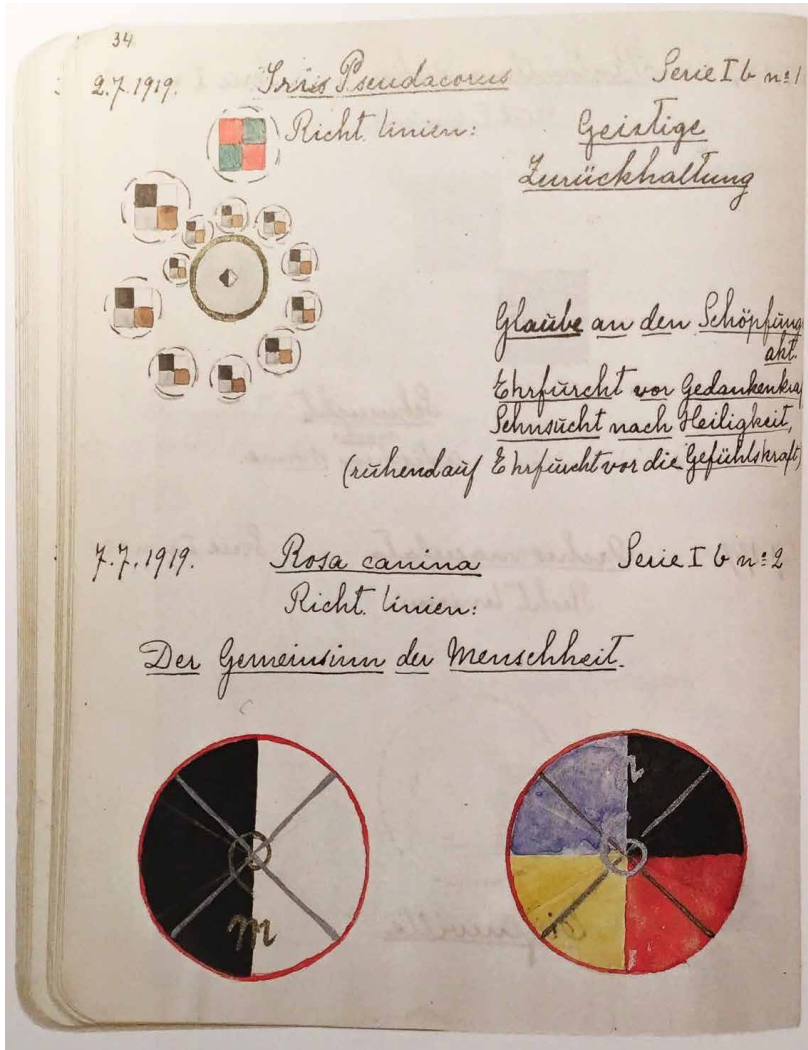 34
2.7.1919. Iris Pseudacorus Serie I b nº 1
Richt. linien: Geistige
Zurückhaltung
Glaube an den Schöpfung
akt.
Ehrfurcht vor Gedankenkraf
Sehnsucht nach Heiligkeit,
(ruhend auf Ehrfurcht vor die Gefühlskraft)
7.7.1919. Rosa canina Serie I b nº 2
Richt. linien:
Der Gemeinsinn der Menschheit.